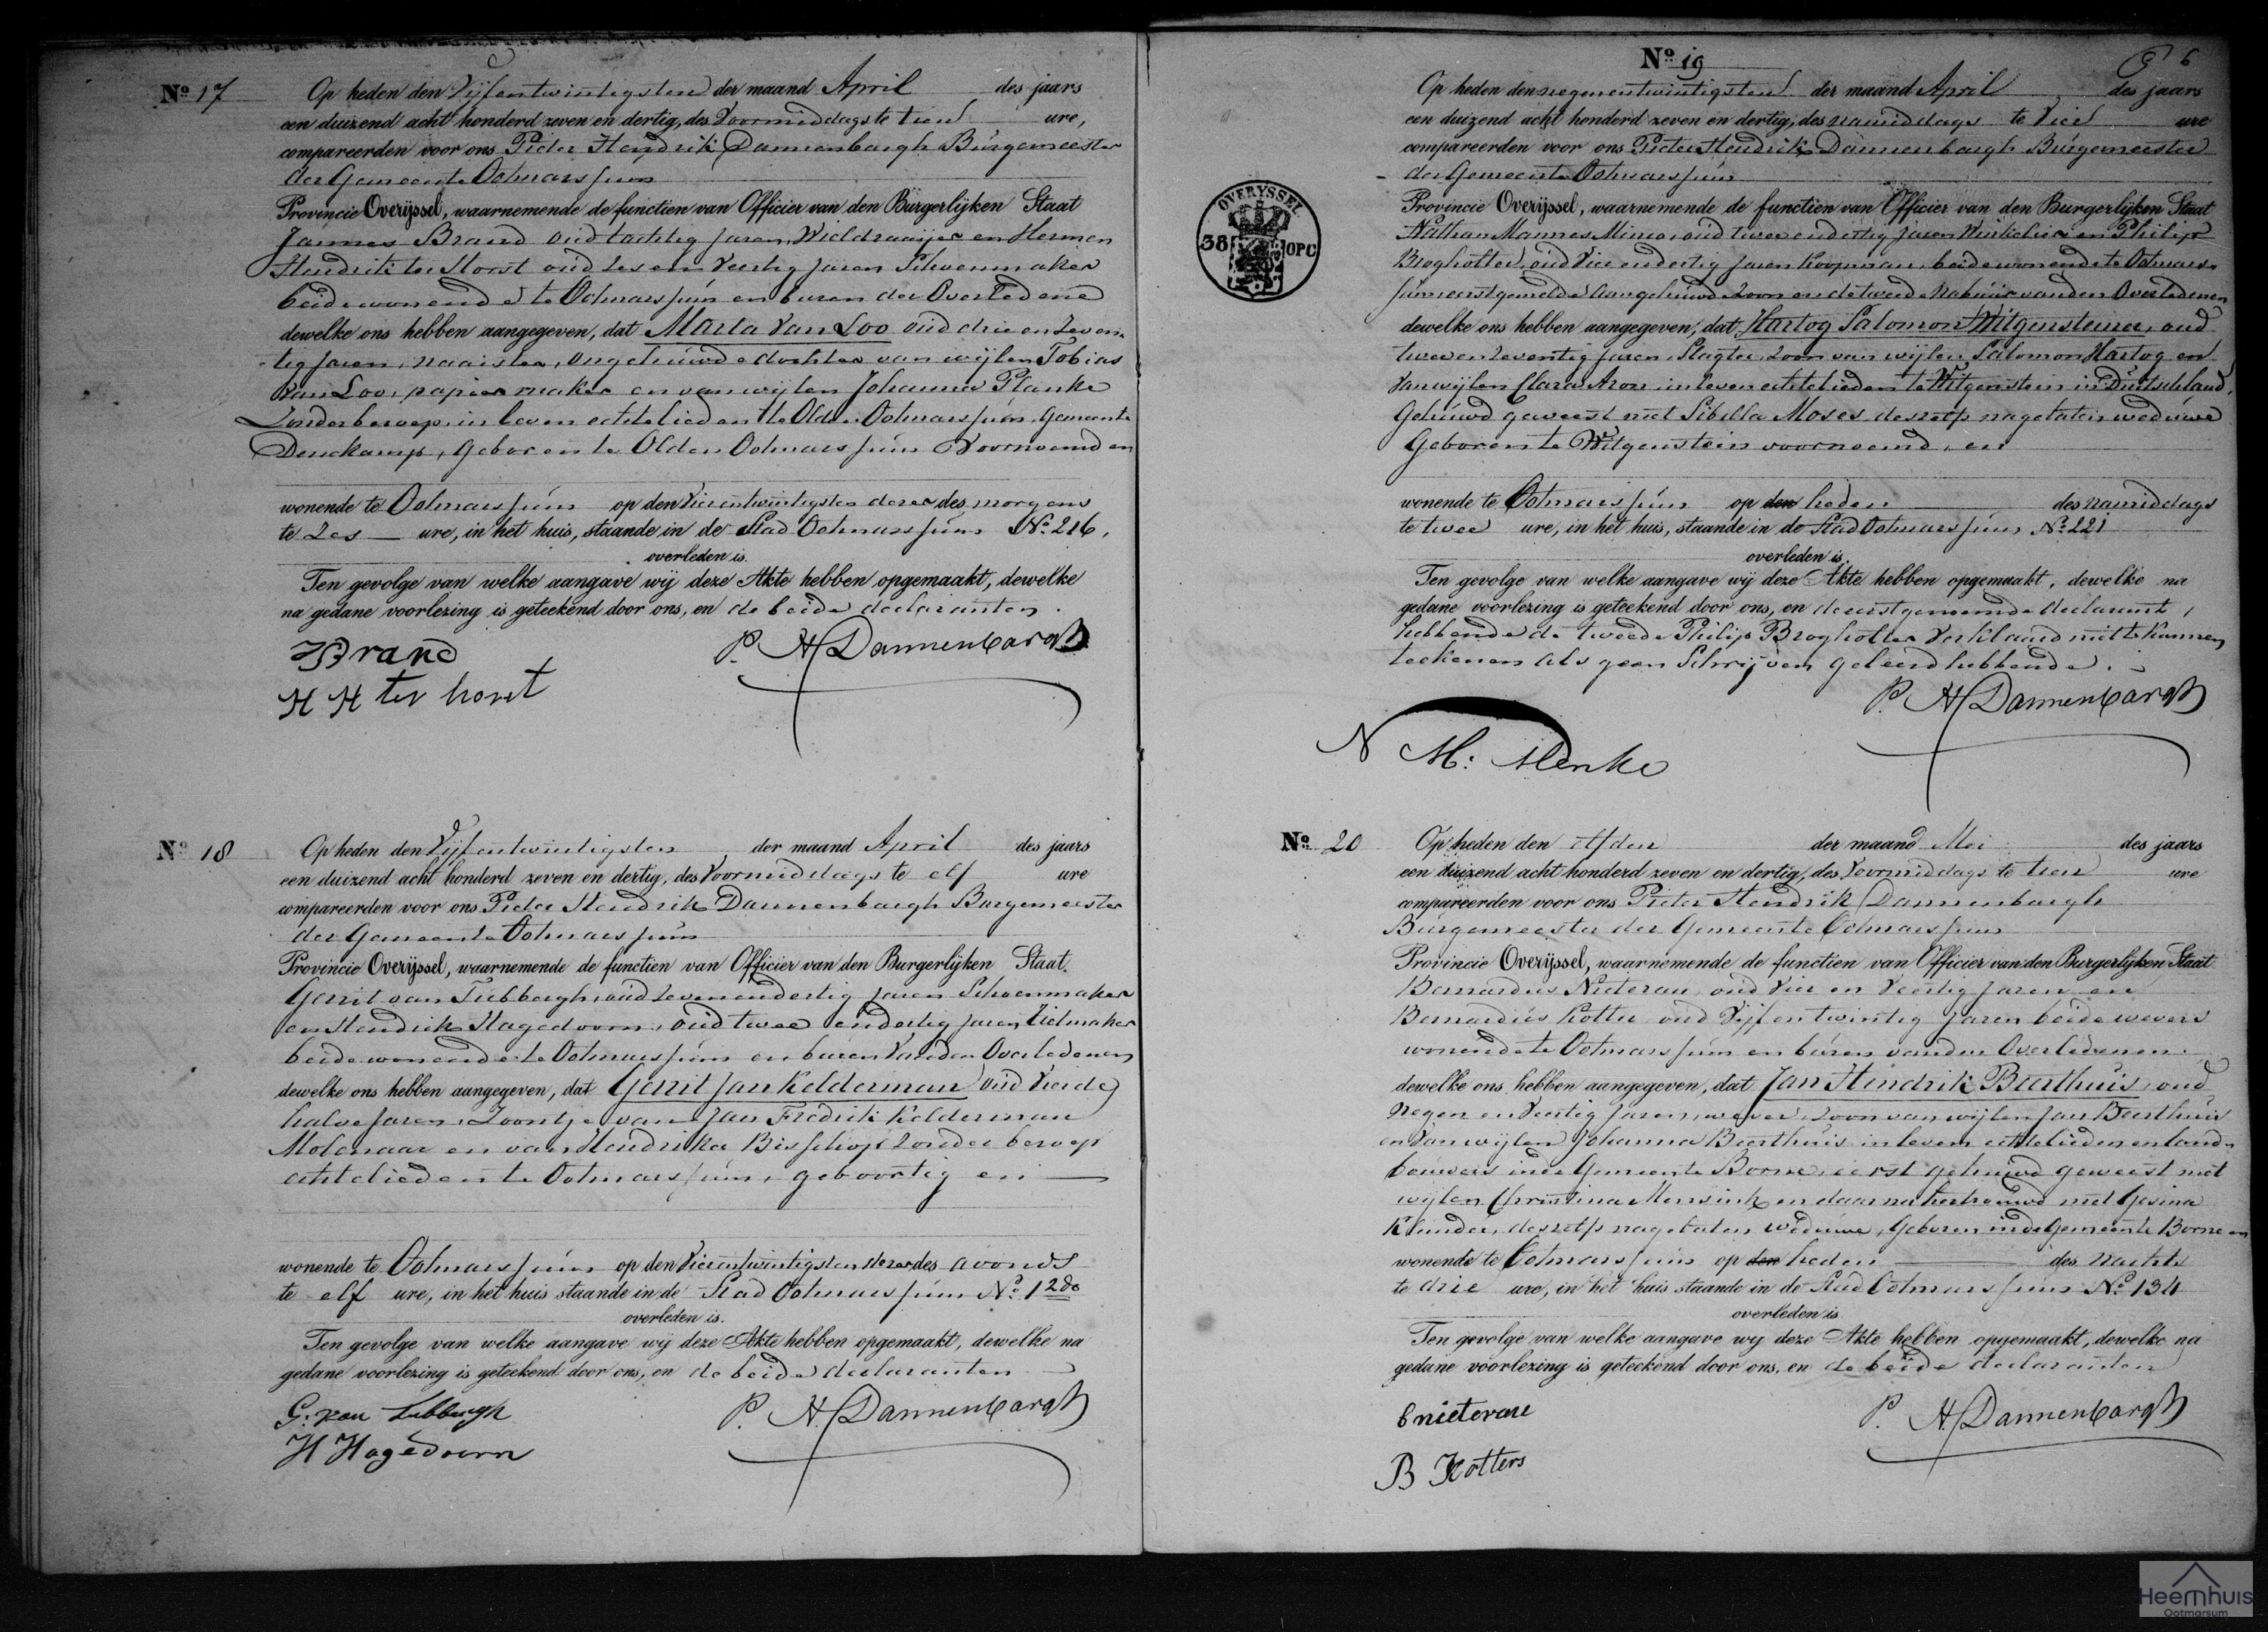 Nº 17
Op heden den Vijfentwintigsten der maand April des jaars
een duizend acht honderd zeven en dertig, des Voormiddags te tien ure,
compareerden voor ons Pieter Hendrik Dannenbargh Burgemeester
der Gemeente Ootmarssum
Provincie Overijssel, waarnemende de functien van Officier van den Burgerlijken Staat
Jannes Brand oud tachtig jaren, Wieldraaijer en Hermen
Hendrik ter Horst oud zes en Veertig jaren Schoenmaker
beide wonende te Ootmarssum en buren der Overledene
dewelke ons hebben aangegeven, dat Maria Van Loo oud drie en Zeven
tig Jaren, naaister, ongehuwde dochter van wijlen Tobias
van Loo, papiermaker en van wijlen Johanna Planke
Zonder beroep, in leven echtelieden te Olden Ootmarssum, Gemeente
Denekamp, Geboren te Olden Ootmarssum Voornoemd en
wonende te Ootmarssum op den Vierentwintigsten dezer des morgens
te Zes ure, in het huis, staande in de Stad Ootmarssum Nº 216,
overleden is.
Ten gevolge van welke aangave wij deze Akte hebben opgemaakt, dewelke
na gedane voorlezing is geteekend door ons, en de beide declaranten.
JBrand P. H Dannenbargh
H H ter horst
Nº 18
Op heden den Vijfentwintigsten der maand April des jaars
een duizend acht honderd zeven en dertig, des Voormiddags te elf ure
compareerden voor ons Pieter Hendrik Dannenbargh Burgemeester
der Gemeente Ootmarssum
Provincie Overijssel, waarnemende de functien van Officier van den Burgerlijken Staat.
Gerrit van Tubbergh, oud Zevenendertig jaren Schoenmaker
en Hendrik Hagedoorn, oud twee endertig jaren
beide wonende te Ootmarssum en buren Van den Overledenen
dewelke ons hebben aangegeven, dat Gerrit Jan Kelderman oud Vierde
halve Jaren, Zoontje van Jan Fredrik Kelderman
Molenaar en van Hendrika Bisschop Zonder beroep
echtelieden te Ootmarssum, geboortig en
wonende te Ootmarssum op den Vierentwintigsten dezer des avonds
te elf ure, in het huis staande in de Stad Ootmarssum Nº
overleden is.
Ten gevolge van welke aangave wij deze Akte hebben opgemaakt, dewelke na
gedane voorlezing is geteekend door ons, en de beide declaranten
G: van Tubbergh P. H Dannenbargh
H Hagedoorn
Nº 19 6
Op heden den negenentwintigsten der maand April des jaars
een duizend acht honderd zeven en dertig, des namiddags te Vier ure
compareerden voor ons Pieter Hendrik Dannenbargh Burgemeester
der Gemeente Ootmarssum
OVERYSSEL
38 OPC
Provincie Overijssel, waarnemende de functien van Officier van den Burgerlijken Staat
Nathan Mannes oud twee endertig jaren en Philip
Broghotter, oud Vier endertig jaren Koopman, beide wonende te Ootmars
sum eerstgemelde aangehuwde Zoon en de tweede Nabuur van den Overledenen
dewelke ons hebben aangegeven, dat Hartog Salomon Witgensteiner, oud
twee en Zeventig jaren, Slagter, Zoon van wijlen Salomon Hartog en
van wijlen Clara Aron in leven echtelieden te Witgenstein in Duitschland,
Gehuwd geweest met Sibilla Moses deszelfs nagelaten weduwe
Geboren te Witgenstein voornoemd, en
wonende te Ootmarssum op den heden des namiddags
te twee ure, in het huis, staande in de Stad Ootmarssum Nº 221
overleden is.
Ten gevolge van welke aangave wij deze Akte hebben opgemaakt, dewelke na
gedane voorlezing is geteekend door ons, en de eerstgenoemde declarant,
hebbende de tweede Philip Broghotter Verklaard niet te kunnen
teekenen als geen Schrijven geleerd hebbende.
P. H Dannenbargh
N M: Menko
Nº 20
Op heden den elfden der maand Mei des jaars
een duizend acht honderd zeven en dertig, des Voormiddags te tien ure
compareerden voor ons Pieter Hendrik Dannenbargh
Burgemeester der Gemeente Ootmarssum
Provincie Overijssel, waarnemende de functien van Officier van den Burgerlijken Staat
Bernardus Nieterau, oud Vier en Veertig Jaren en
Bernardus Kotter oud Vijfentwintig jaren beide wevers
wonende te Ootmarssum en buren van den Overledenen.
dewelke ons hebben aangegeven, dat Jan Hendrik Beerthuis, oud
Negen en Veertig Jaren, wever, Zoon van wijlen Jan Beerthuis
en Van wijlen Johanna Beerthuis in leven echtelieden en land
bouwers in de Gemeente Borne, eerst gehuwd geweest met
wijlen Christina Mensink en daarna hertrouwd met Gesina
Klunder, deszelfs nagelaten weduwe, Geboren in de Gemeente Borne en
wonende te Ootmarssum op den heden des nachts
te drie ure, in het huis staande in de Stad Ootmarssum Nº 134
overleden is
Ten gevolge van welke aangave wy deze Akte hebben opgemaakt, dewelke na
gedane voorlezing is geteekend door ons, en de beide declaranten
B nieterau P. H. Dannenbargh
B Kotters
Heemhuis
Ootmarsum